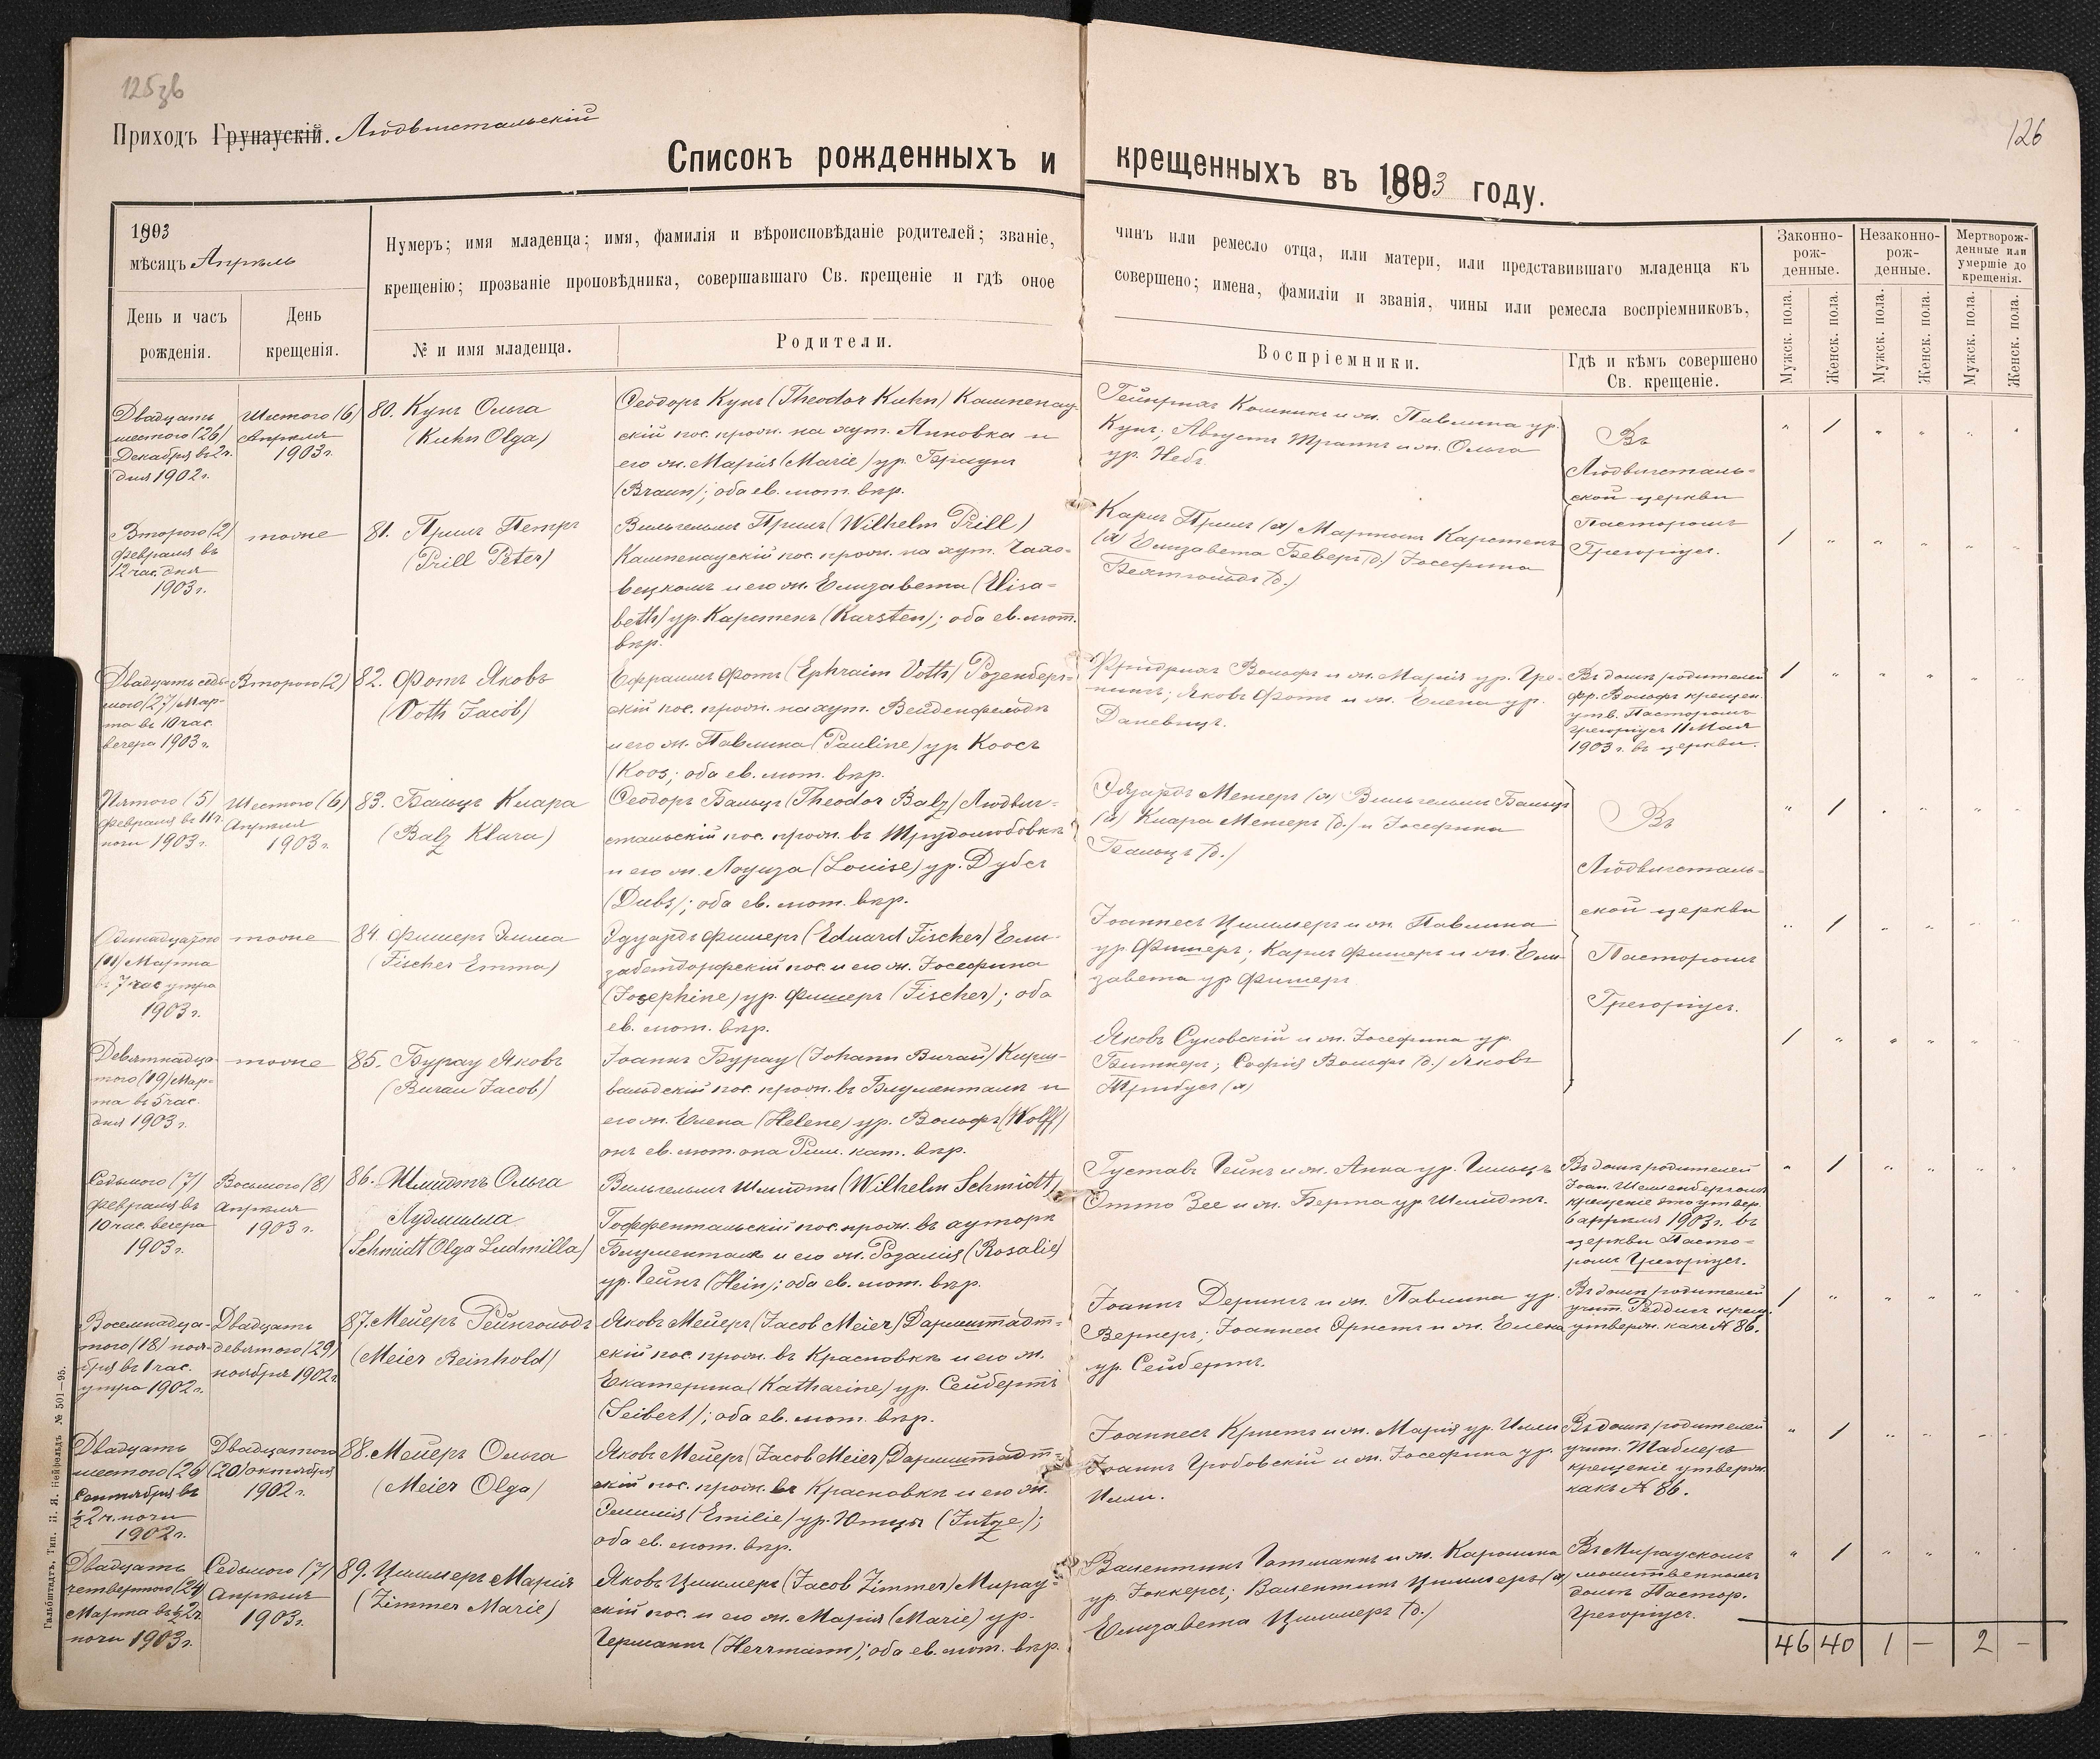 125зв
126
Приходъ Грунаускій. Людвигстальскій
Списокъ рожденныхъ и крещенныхъ въ 1903 году.
1903
мѣсяцъ Апрѣль
День и часъ рожденія.
День крещенія.
Нумеръ; имя младенца; имя, фамилія и вѣроисповѣданіе родителей; званіе, чинъ или ремесло отца, или матери, или представившаго младенца къ
крещенію; прозваніе проповѣдника, совершавшаго Св. крещеніе и гдѣ оное совершено; имена, фамиліи и званія, чины или ремесла воспріемниковъ,
№ и имя младенца.
Родители.
Воспріемники.
Гдѣ и кѣмъ совершено
Св. крещеніе.
Законно-
рож-
денные.
Незаконно-
рож-
денные.
Мертворож-
денные или
умершіе до
крещенія.
Мужск. пола.
Женск. пола.
Мужск. пола.
Женск. пола.
Мужск. пола.
Женск. пола.
Двадцать
шестого (26)
Декабря въ 2 ч.
дня 1902 г.
Шестого (6)
Апрѣля
1903 г.
80. Кунъ Ольга
(Kuhn Olga)
Ѳеодоръ Кунъ (Theodor Kuhn) Кампенау-
скій пос. прож. на хут. Анновка и
его ж. Марія (Marie) ур. Браунъ
(Braun); оба ев. лют. вѣр.
Кунъ; Августъ и ж. Ольга
Въ
Людвигсталь-
ской церкви
Пасторомъ
Грегоріусъ.
Второго (2)
Февраля въ
12 час. дня
1903 г.
тоже
81. Прилъ Петръ
(Prill Peter)
Вильгельмъ Прилъ (Wilhelm Prill)
Кампенаускій пос. прож. на хут.
и его ж. Елизавета (Elisa-
beth) ур. Карстенъ (Karsten); оба ев. лют.
вѣр.
Карлъ Прилъ (х) Мартинъ Карстенъ
(х) Елизавета Беверъ (д.) Іосефина
Двадцать седь-
мого (27) Мар-
та въ 10 час.
вечера 1903 г.
Второго (2)
82. Фотъ Яковъ
(Voth Jacob)
Ефраимъ Фотъ (Ephraim Voth) Розенберг-
скій пос. прож. на хут. Вейденфельдъ
и его ж. Павлина (Pauline) ур. Коосъ
(Koos; оба ев. лют. вѣр.
Фридрихъ Вольфъ и ж. Марія ур.
Яковъ Фотъ и ж. Елена ур.
Въ домѣ родителей
фр. Вольфъ крещен.
утв. Пасторомъ
Грегоріусъ 11 Мая
1903 г. въ церкви.
Пятого (5)
Февраля въ 11 ч.
ночи 1903 г.
Шестого (6)
Апрѣля
1903 г.
83. Бальцъ Клара
(Balz Klara)
Ѳеодоръ Бальцъ (Theodor Balz) Людвиг-
стальскій пос. прож. въ Трудолюбовкѣ
и его ж. Луиза (Louise) ур. Дубсъ
(Dubs); оба ев. лют. вѣр.
Эдуардъ (х) Вильгельмъ Бальцъ
(х) Клара (д.) и Іосефина
Бальцъ (д.)
Въ
Людвигсталь-
ской церкви
Пасторомъ
Грегоріусъ.
Одинадцатого
(11) Марта
въ 7 час утра
1903 г.
тоже
84. Фишеръ Эмма
(Fischer Emma)
Эдуардъ Фишеръ (Eduard Fischer) Ели-
забетдорфскій пос. и его ж. Іосефина
(Josephine) ур. Фишеръ (Fischer); оба
ев. лют. вѣр.
Іоаннесъ Циммеръ и ж. Павлина
ур. Фишеръ; Карлъ Фишеръ и ж. Ели-
завета ур Фишеръ
Девятнадца-
того (19) Мар-
та въ 5 час.
дня 1903 г.
тоже
85. Бурау Яковъ
(Burau Jacob)
Іоаннъ Бурау (Johann Burau) Кирш-
вальдскій пос. прож. въ Блументалѣ и
его ж. Елена (Helene) ур. Вольфъ (Wolff)
онъ ев. лют. она Рим. кат. вѣр.
Яковъ Суковскій и ж. Іосефина ур.
Софія Вольфъ (д.) Яковъ
Трибусъ (х)
Седьмого (7)
Февраля въ
10 час. вечера
1903 г.
Восьмого (8)
Апрѣля
1903 г.
86. Шмидтъ Ольга
Лудмилла
(Schmidt Olga Ludmilla)
Вильгельмъ Шмидтъ (Wilhelm Schmidt)
Гоффентальскій пос. прож. въ хуторѣ
Блументалѣ и его ж. Розалія (Rosalie)
ур. Гейнъ (Hein); оба ев. лют. вѣр.
Густавъ Гейнъ и ж. Анна ур. Гильцъ
Отто Зее и ж. Берта ур Шмидтъ.
Въ домѣ родителей
Іоан. Шелленбергомъ
крещеніе это утвер.
6 апрѣля 1903 г. въ
церкви Пасто-
ромъ Грегоріусъ.
Восемнадца-
того (18) нояб-
бря въ 1 час.
утра 1902 г.
Двадцать
девятого (29)
ноября 1902 г.
87. Мейеръ Рейнгольдъ
(Meier Reinhold)
Яковъ Мейеръ (Jacob Meier) Дармштадт-
скій пос. прож. въ Красновкѣ и его ж.
Екатерина (Katharine) ур. Сейбертъ
(Seibert); оба ев. лют. вѣр.
Іоаннъ Дерингъ и ж. Павлина ур.
Вернеръ; Іоаннесъ Эрнстъ и ж. Елена
ур. Сейбертъ.
Въ домѣ родителей
учит. Реддигъ крещ.
утверж. какъ № 86.
Двадцать
шестого (26)
Сентября въ
½2 ч. ночи
1902 г.
Двадцатого
(20) октября
1902 г.
88. Мейеръ Ольга
(Meier Olga)
Яковъ Мейеръ (Jacob Meier) Дармштадт-
скій пос. прож. въ Красновкѣ и его ж.
Эмилія (Emilie) ур. Ютцы (Jutze);
оба ев. лют. вѣр.
Іоаннесъ Кристъ и ж. Марія ур. Илли
Іоаннъ Гробовскій и ж. Іосефина ур.
Илли.
Въ домѣ родителей
учит. Таблеръ
крещеніе утверж.
какъ № 86.
Двадцать
четвертого (24)
Марта въ ½2 ч.
ночи 1903 г.
Седьмого (7)
Апрѣля
1903 г.
89. Циммеръ Марія
(Zimmer Marie)
Яковъ Циммеръ (Jacob Zimmer) Мирау-
скій пос. и его ж. Марія (Marie) ур.
Германнъ (Herrmann); оба ев. лют. вѣр.
Валентинъ Гатманнъ и ж. Каролина
ур. Іоккерсъ; Валентинъ Циммеръ (х)
Елизавета Циммеръ (д.)
Въ Мираускомъ
молитвенномъ
домѣ Пастор.
Грегоріусъ.
46 40 1 — 2 —
Гальбштадтъ, Тип. П. Я. Нейфельдъ № 501—95.